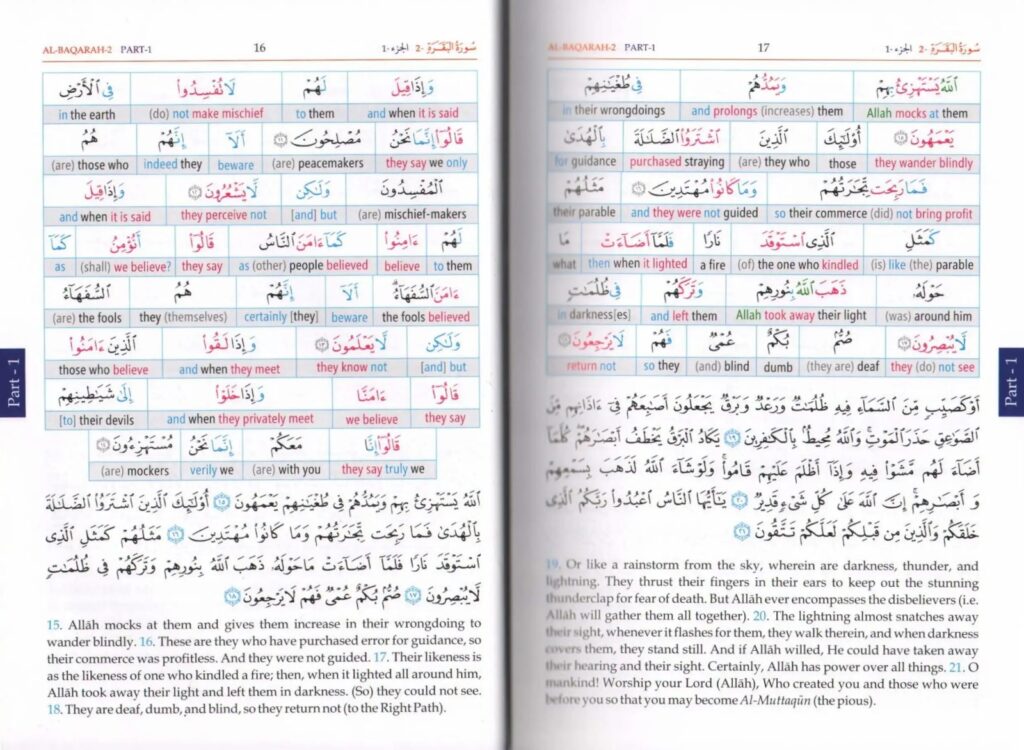 AL-BAQARAH-2 PART-1 16 سُورَةُ الْبَقَرَةِ -2 الجزء-1
وَإِذَا قِيلَ لَهُمْ لَا تُفْسِدُوا۟ فِى ٱلْأَرْضِ
in the earth (do) not make mischief to them and when it is said
قَالُوٓا۟ إِنَّمَا نَحْنُ مُصْلِحُونَ ١١ أَلَآ إِنَّهُمْ هُمُ
(are) those who indeed they beware (are) peacemakers they say we only
ٱلْمُفْسِدُونَ وَلَـٰكِن لَّا يَشْعُرُونَ ١٢ وَإِذَا قِيلَ
and when it is said they perceive not [and] but (are) mischief-makers
لَهُمْ ءَامِنُوا۟ كَمَآ ءَامَنَ ٱلنَّاسُ قَالُوٓا۟ أَنُؤْمِنُ كَمَآ
as (shall) we believe? they say as (other) people believed believe to them
ءَامَنَ ٱلسُّفَهَآءُ أَلَآ إِنَّهُمْ هُمُ ٱلسُّفَهَآءُ
(are) the fools they (themselves) certainly [they] beware the fools believed
وَلَـٰكِن لَّا يَعْلَمُونَ ١٣ وَإِذَا لَقُوا۟ ٱلَّذِينَ ءَامَنُوا۟
those who believe and when they meet they know not [and] but
قَالُوٓا۟ ءَامَنَّا وَإِذَا خَلَوْا۟ إِلَىٰ شَيَـٰطِينِهِمْ
[to] their devils and when they privately meet we believe they say
قَالُوٓا۟ إِنَّا مَعَكُمْ إِنَّمَا نَحْنُ مُسْتَهْزِءُونَ ١٤
(are) mockers verily we (are) with you they say truly we
ٱللَّهُ يَسْتَهْزِئُ بِهِمْ وَيَمُدُّهُمْ فِى طُغْيَـٰنِهِمْ يَعْمَهُونَ ١٥ أُو۟لَـٰٓئِكَ ٱلَّذِينَ ٱشْتَرَوُا۟ ٱلضَّلَـٰلَةَ
بِٱلْهُدَىٰ فَمَا رَبِحَت تِّجَـٰرَتُهُمْ وَمَا كَانُوا۟ مُهْتَدِينَ ١٦ مَثَلُهُمْ كَمَثَلِ ٱلَّذِى
ٱسْتَوْقَدَ نَارًا فَلَمَّآ أَضَآءَتْ مَا حَوْلَهُۥ ذَهَبَ ٱللَّهُ بِنُورِهِمْ وَتَرَكَهُمْ فِى ظُلُمَـٰتٍ
لَّا يُبْصِرُونَ ١٧ صُمٌّۢ بُكْمٌ عُمْىٌ فَهُمْ لَا يَرْجِعُونَ ١٨
15. Allāh mocks at them and gives them increase in their wrongdoing to
wander blindly. 16. These are they who have purchased error for guidance, so
their commerce was profitless. And they were not guided. 17. Their likeness is
as the likeness of one who kindled a fire; then, when it lighted all around him,
Allāh took away their light and left them in darkness. (So) they could not see.
18. They are deaf, dumb, and blind, so they return not (to the Right Path).
Part - 1
AL-BAQARAH-2 PART-1 17 سُورَةُ الْبَقَرَةِ -2 الجزء-1
ٱللَّهُ يَسْتَهْزِئُ بِهِمْ وَيَمُدُّهُمْ فِى طُغْيَـٰنِهِمْ
in their wrongdoings and prolongs (increases) them Allah mocks at them
يَعْمَهُونَ ١٥ أُو۟لَـٰٓئِكَ ٱلَّذِينَ ٱشْتَرَوُا۟ ٱلضَّلَـٰلَةَ بِٱلْهُدَىٰ
for guidance purchased straying (are) they who those they wander blindly
فَمَا رَبِحَت تِّجَـٰرَتُهُمْ وَمَا كَانُوا۟ مُهْتَدِينَ ١٦ مَثَلُهُمْ
their parable and they were not guided so their commerce (did) not bring profit
كَمَثَلِ ٱلَّذِى ٱسْتَوْقَدَ نَارًا فَلَمَّآ أَضَآءَتْ مَا
what then when it lighted a fire (of) the one who kindled (is) like (the) parable
حَوْلَهُۥ ذَهَبَ ٱللَّهُ بِنُورِهِمْ وَتَرَكَهُمْ فِى ظُلُمَـٰتٍ
in darkness[es] and left them Allah took away their light (was) around him
لَّا يُبْصِرُونَ ١٧ صُمٌّۢ بُكْمٌ عُمْىٌ فَهُمْ لَا يَرْجِعُونَ ١٨
return not so they (and) blind dumb (they are) deaf they (do) not see
أَوْ كَصَيِّبٍ مِّنَ ٱلسَّمَآءِ فِيهِ ظُلُمَـٰتٌ وَرَعْدٌ وَبَرْقٌ يَجْعَلُونَ أَصَـٰبِعَهُمْ فِىٓ ءَاذَانِهِم مِّنَ
ٱلصَّوَٰعِقِ حَذَرَ ٱلْمَوْتِ وَٱللَّهُ مُحِيطٌۢ بِٱلْكَـٰفِرِينَ ١٩ يَكَادُ ٱلْبَرْقُ يَخْطَفُ أَبْصَـٰرَهُمْ كُلَّمَآ
أَضَآءَ لَهُم مَّشَوْا۟ فِيهِ وَإِذَآ أَظْلَمَ عَلَيْهِمْ قَامُوا۟ وَلَوْ شَآءَ ٱللَّهُ لَذَهَبَ بِسَمْعِهِمْ
وَأَبْصَـٰرِهِمْ إِنَّ ٱللَّهَ عَلَىٰ كُلِّ شَىْءٍ قَدِيرٌ ٢٠ يَـٰٓأَيُّهَا ٱلنَّاسُ ٱعْبُدُوا۟ رَبَّكُمُ ٱلَّذِى
خَلَقَكُمْ وَٱلَّذِينَ مِن قَبْلِكُمْ لَعَلَّكُمْ تَتَّقُونَ ٢١
19. Or like a rainstorm from the sky, wherein are darkness, thunder, and
lightning. They thrust their fingers in their ears to keep out the stunning
thunderclap for fear of death. But Allāh ever encompasses the disbelievers (i.e.
Allah will gather them all together). 20. The lightning almost snatches away
their sight, whenever it flashes for them, they walk therein, and when darkness
covers them, they stand still. And if Allāh willed, He could have taken away
their hearing and their sight. Certainly, Allāh has power over all things. 21. O
mankind! Worship your Lord (Allāh), Who created you and those who were
before you so that you may become Al-Muttaqūn (the pious).
Part - 1